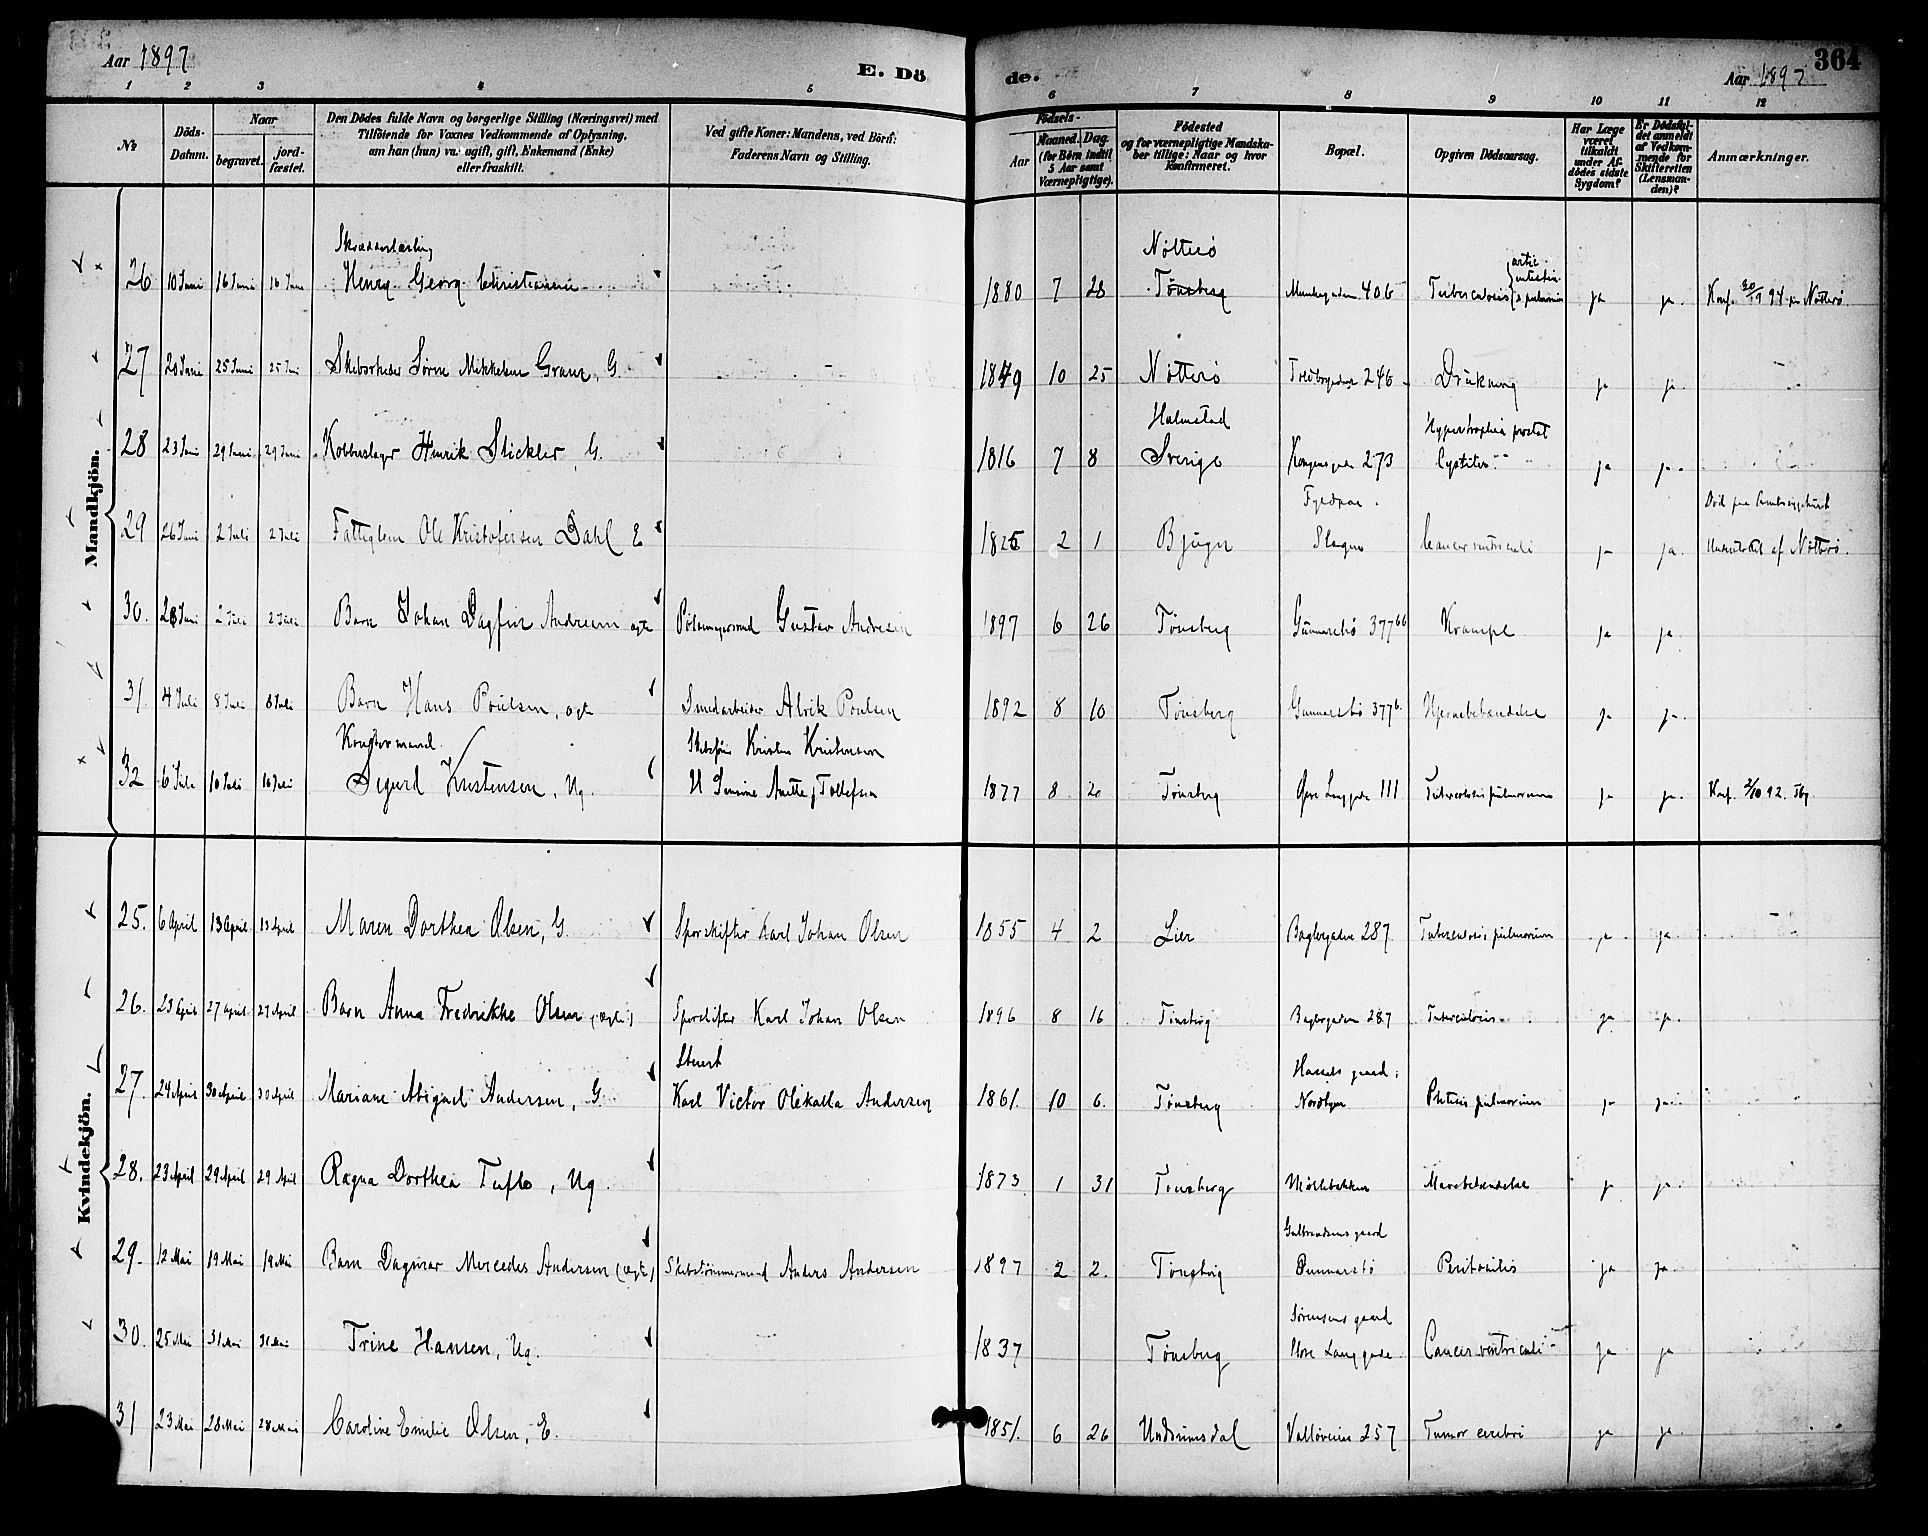 Aar 1897
E. Dö
de.
Aar 1897
364
1 2 3 4 5 6 7 8 9 10 11 12
No
Döds-Datum.
Naar
begravet.
jord-fæstet.
Den Dödes fulde Navn og borgerlige Stilling (Næringsvei) med
Tilföiende for Voxnes Vedkommende af Oplysning,
om han (hun) var ugift, gift, Enkemand (Enke)
eller fraskilt.
Ved gifte Koner: Mandens, ved Börn:
Faderens Navn og Stilling.
Födsels-
Aar
Maaned. Dag.
(for Börn indtil
5 Aar samt
Værnepligtige).
Födested
og for værnepligtige Mandska-
ber tillige: Naar og hvor
konfirmeret.
Bopæl.
Opgiven Dödsaarsag.
Har Læge
været
tilkaldt
under Af-
dödes sidste
Sygdom?
Er Dödsfal-
det anmeldt
af Vedkom-
mende for
Skifteretten
(Lensman-
den)?
Anmærkninger.
Mandkjön.
Nötterö
26 10 Juni 16 Juni 16 Juni Henry Georg Christiansen 1880 7 28 Tönsberg 406 Tuberculosis pulmonis ja ja. Konf. 94 Nötterö
27 20 Juni 25 Juni 25 Juni Sören Mikkelsen Gran, G. 1849 10 25 Nötterö 246 Drukning ja ja.
Halmstad Hypertrophia prostat
28 23 Juni 29 Juni 29 Juni Kobberslager Henrik Stickler, G. 1816 7 8 Sverige Kongensgade 273 Cystitis ja ja
29 26 Juni 2 Juli 2 Juli Ole Kristofersen Dahl E 2 1 Bjugn Slagen Cancer ventriculi ja ja. af Nötterö.
30. 28 Juni 2 Juli 2 Juli Barn Johan Dagfin Andresen ægte Pölsemager Gustav Andresen 1897 6 26 Tönsberg Gunnarsbö 377 Krampe ja ja
31. 4 Juli 8 Juli 8 Juli Barn Hans Poulsen, ægte Smedarbeider Alrik Poulsen 1892 8 10 Tönsberg Gunnarsbö 377 Hjernebetændelse ja ja.
Kontormand. Kristen Kristensen
32 6 Juli 10 Juli 10 Juli Sigurd Kristensen, Ug. Anette Tollefsen 1877 8 20 Tönsberg Övre Langgade 111 Tuberculosis pulmonum ja ja. Konf. 2/10 92. Tbg
Kvindekjön.
25. 6 April 13 April 13 April Maren Dorthea Olsen, G. Sporskifter Karl Johan Olsen 1855 4 2 Lier Baglergaden 287 Tuberculosis pulmonum ja ja
26. 23 April 27 April 27 April Barn Anna Fredrikke Olsen (ægte) Sporskifter Karl Johan Olsen 1896 8 16 Tönsberg Baglergaden 287 Tuberculosis ja ja.
Stuert
27. 24 April 30 April 30 April Mariane Abigael Andersen, G. Karl Victor Andersen 1861. 10 6. Tönsberg Nordbyen Phtisis pulmonum ja ja
28. 23 April 29 April 29 April Ragna Dorthea Tufte, Ug. 1873 1 31 Tönsberg Möllebakken Mavebetændelse ja ja.
Gulbrandsens gaard
29. 12 Mai 19 Mai 19 Mai Barn Dagmar Mercedes Andersen (ægte) Skibstömmermand Anders Andersen 1897 2 2. Tönsberg Gunnarsbö Peritonitis ja ja.
Sörensens gaard
30. 25 Mai 31 Mai 31 Mai Trine Hansen, Ug. 1837 Tönsberg Store Langgade Cancer ventriculi ja ja
31 23 Mai 28 Mai 28 Mai Caroline Emilie Olsen, E. 1851. 6 26 Undrumsdal Vallöveien 257 Tumor cerebri ja ja.